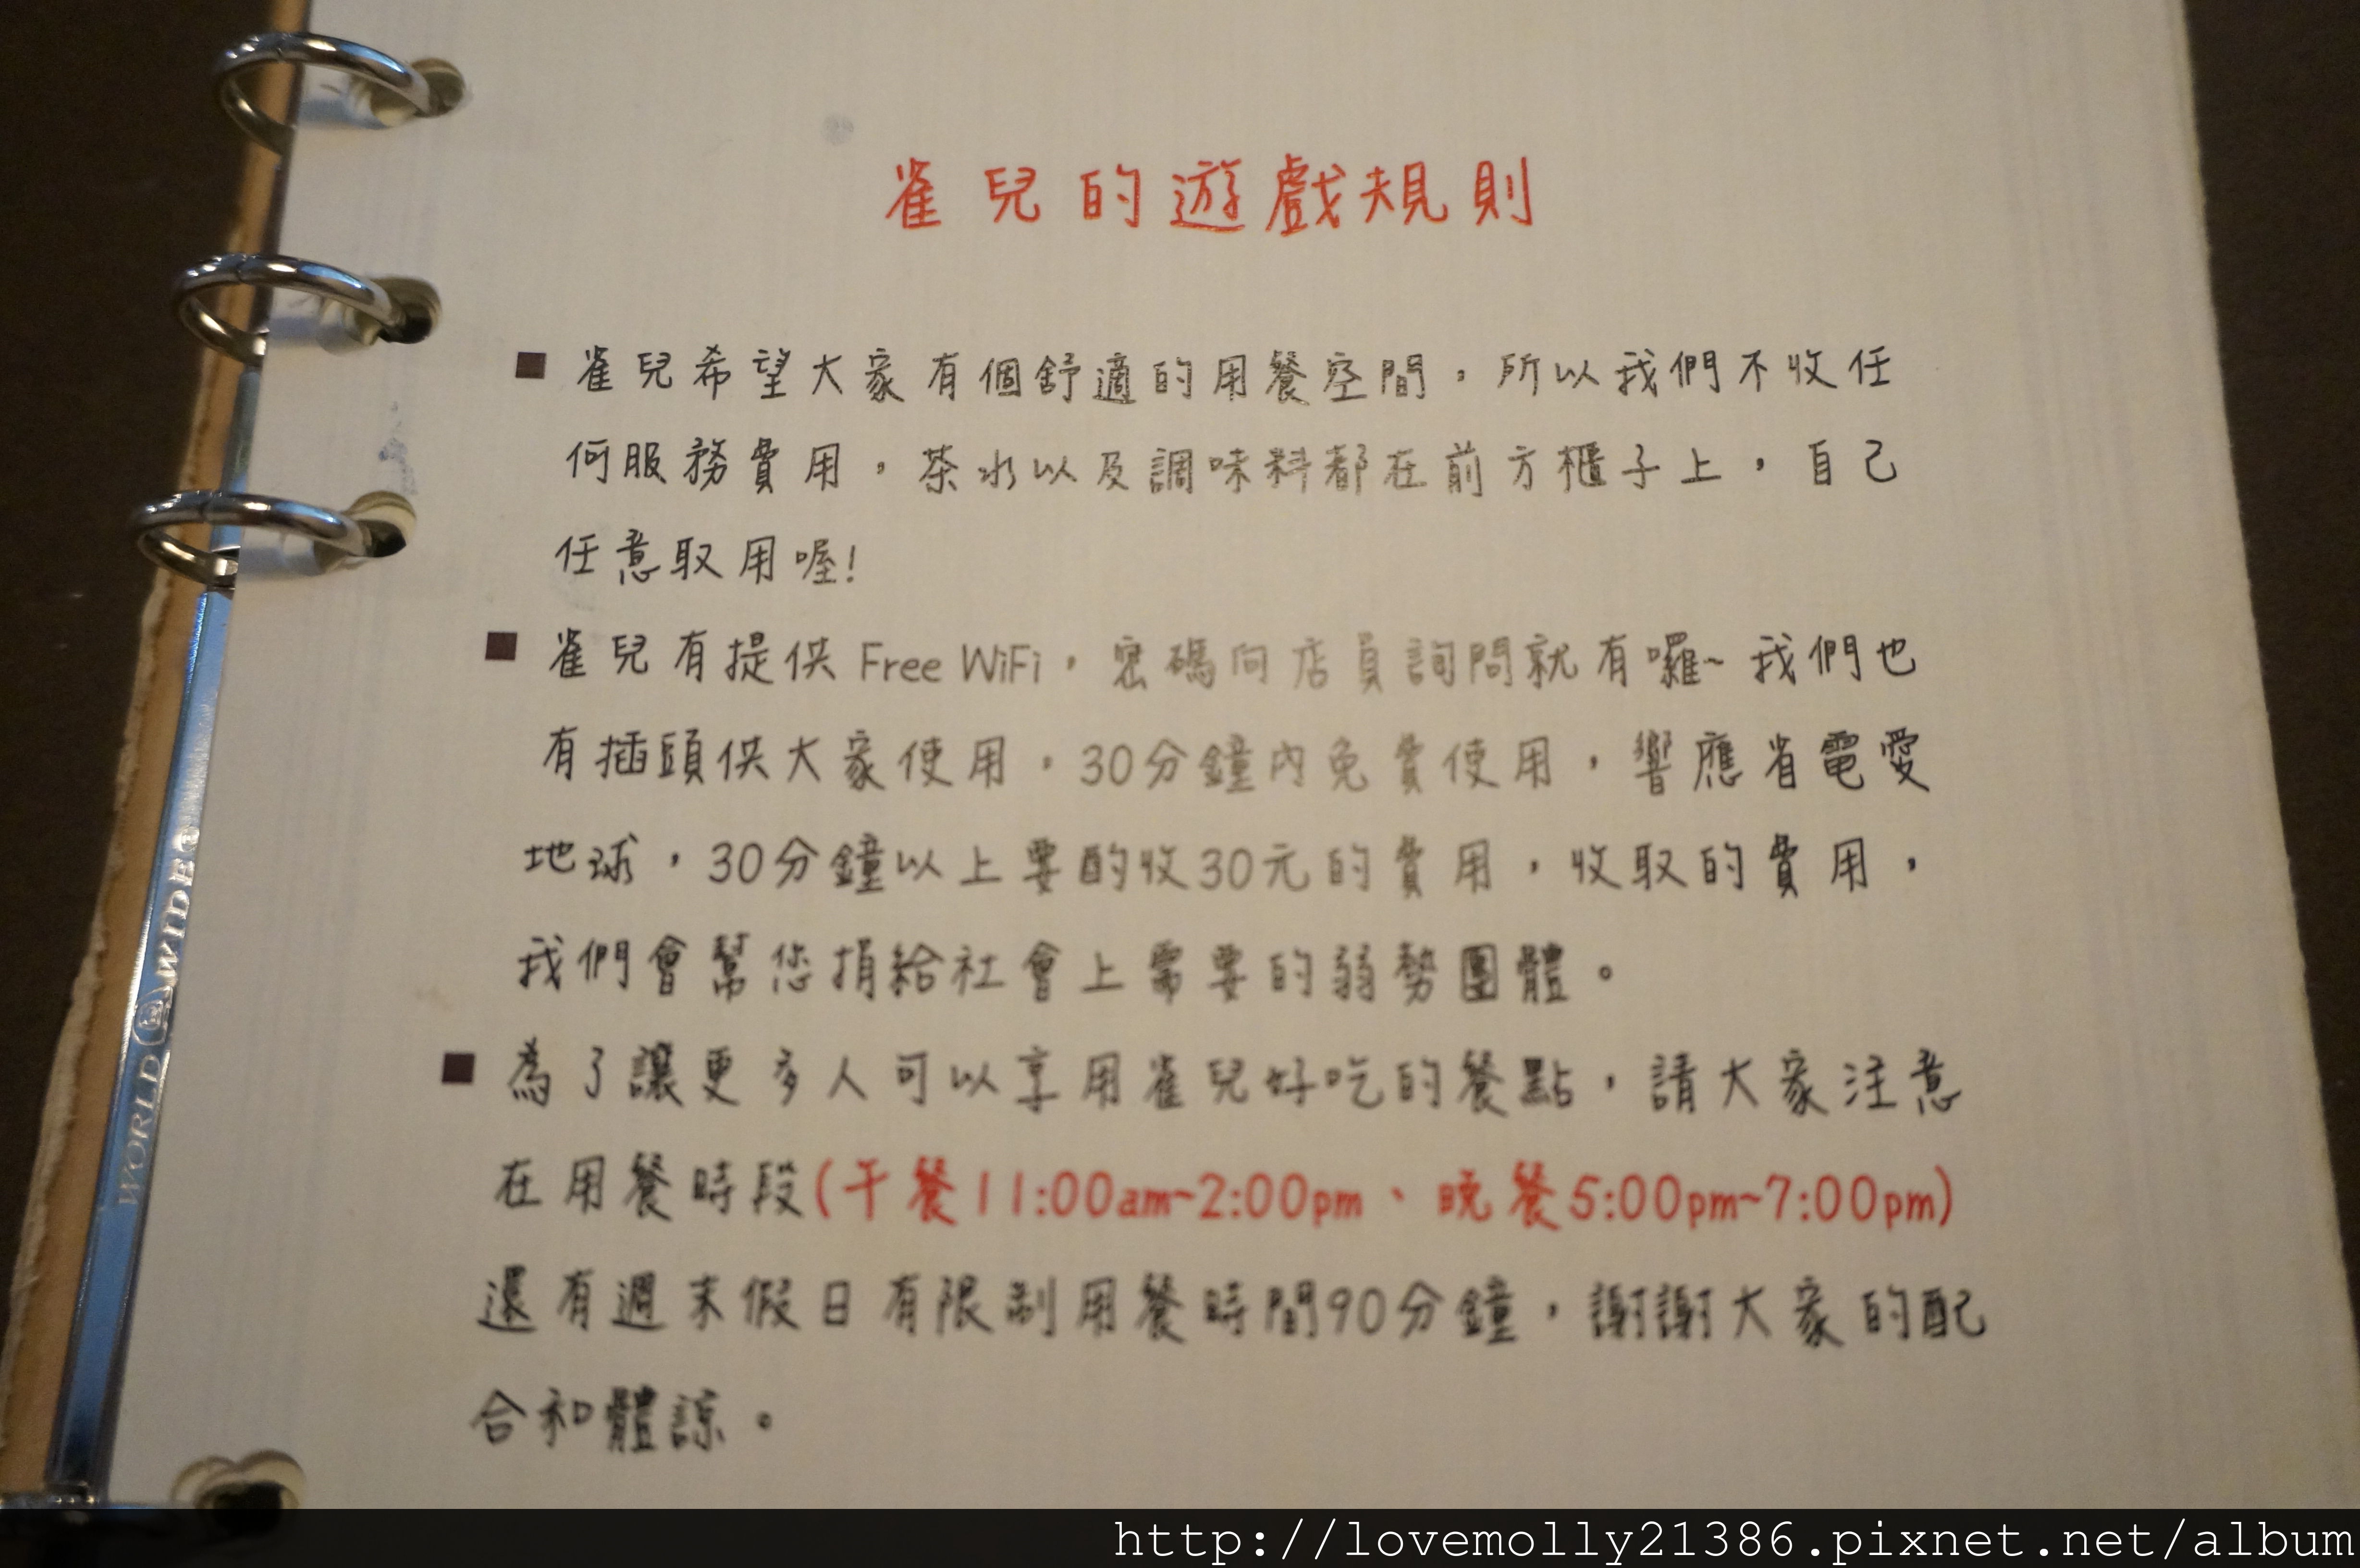 雀兒的遊戲規則
■ 雀兒希望大家有個舒適的用餐空間，所以我們不收任
何服務費用，茶水以及調味料都在前方櫃子上，自己
任意取用喔!
■ 雀兒有提供 Free WiFi，密碼向店員詢問就有囉~ 我們也
有插頭供大家使用，30分鐘內免費使用，響應省電愛
地球，30分鐘以上要酌收30元的費用，收取的費用，
我們會幫您捐給社會上需要的弱勢團體。
■ 為了讓更多人可以享用雀兒好吃的餐點，請大家注意
在用餐時段(午餐11:00am~2:00pm、晚餐5:00pm~7:00pm)
還有週末假日有限制用餐時間90分鐘，謝謝大家的配
合和體諒。
WORLD WIDE
http://lovemolly21386.pixnet.net/album